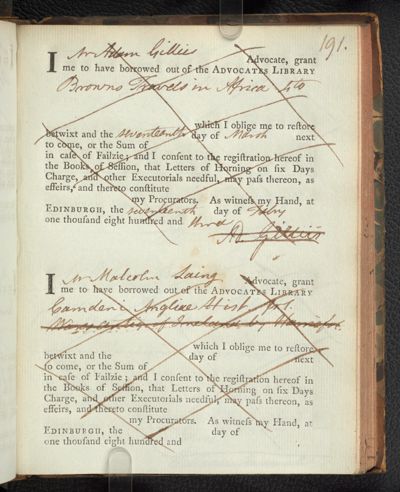 191.
I Mr Adam Gillies Advocate, grant
me to have borrowed out of the ADVOCATES LIBRARY
Browns Travels in Africa 4to
betwixt and the seventeenth which I oblige me to reſtore
day of March next
to come, or the Sum of
in caſe of Failzie; and I conſent to the regiſtration hereof in
the Books of Seſſion, that Letters of Horning on ſix Days
Charge, and other Executorials needful, may paſs thereon, as
effeirs, and thereto conſtitute
my Procurators. As witneſs my Hand, at
EDINBURGH, the seventeenth day of Febry
one thouſand eight hundred and three
Ad Gillies
I Mr Malcolm Laing Advocate, grant
me to have borrowed out of the ADVOCATES LIBRARY
Camdeni Angliae Hist. fol.
of Ireland by Harris fol.
which I oblige me to reſtore
betwixt and the day of next
to come, or the Sum of
in caſe of Failzie; and I conſent to the regiſtration hereof in
the Books of Seſſion, that Letters of Horning on ſix Days
Charge, and other Executorials needful, may paſs thereon, as
effeirs, and thereto conſtitute
my Procurators. As witneſs my Hand, at
EDINBURGH, the day of
one thouſand eight hundred and